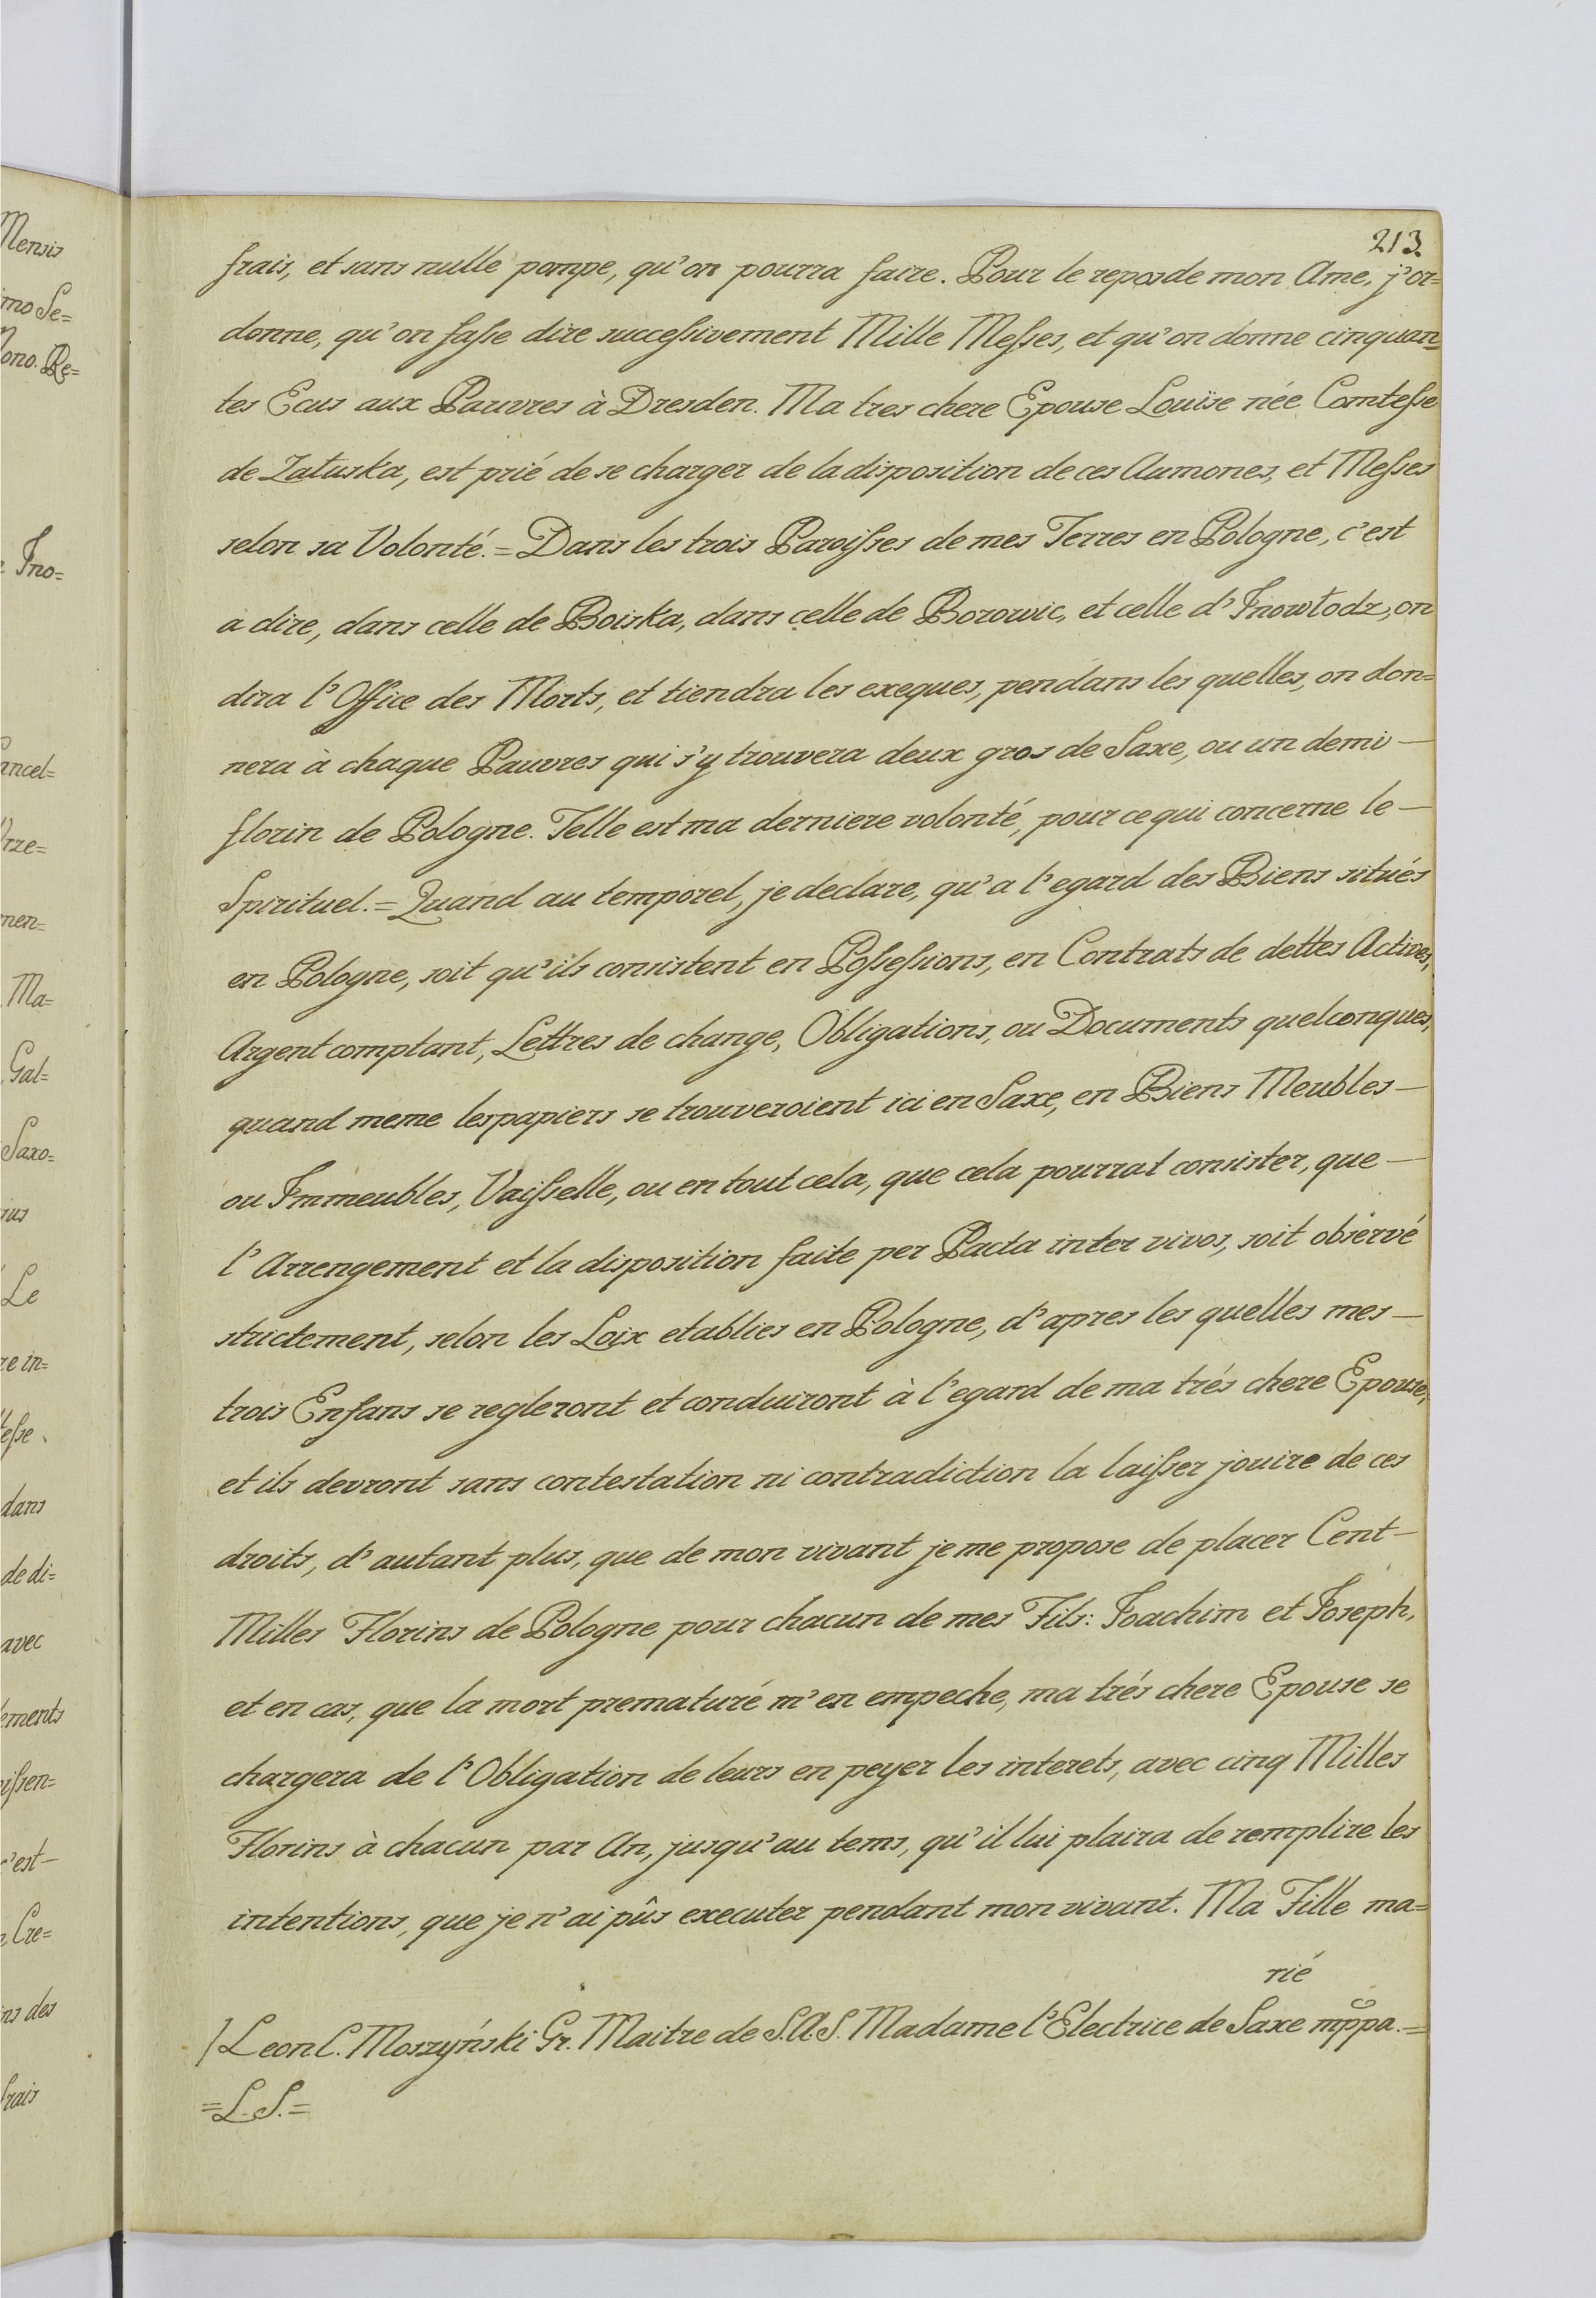 213.
frais, et sans nulle pompe, qu'on pourra faire. Pour le repos de mon Ame, j'or=
donne, qu'on faſse dire succeſsivement Mille Meſses, et qu'on donne cinquan=
tes Ecus aux Pauvres à Dresden. Ma tres chere Epouse Louïse née Comteſse
de Zatuska, est prié de se charger de la disposition de ces Aumones, et Meſses
selon sa Volonté.= Dans les trois Paroiſses de mes Terres en Pologne, c'est
a dire, dans celle de Boiska, dans celle de Borowic, et celle d'Inowłodz, on
dira l'Office des Morts, et tiendra les exeques, pendans les quelles, on don=
nera à chaque Pauvres qui s'y trouvera deux gros de Saxe, ou un demi —
florin de Pologne. Telle est ma derniere volonté, pour ce qui concerne le —
Spirituel.= Quand au temporel, je declare, qu'a l'egard des Biens situés
en Pologne, soit qu'ils consistent en Poſseſsions, en Contrats de dettes Actives,
Argent comptant, Lettres de change, Obligations, ou Documents quelconques,
quand meme les papiers se trouveroient ici en Saxe, en Biens Meubles —
ou Immeubles, Vaiſselle, ou en tout cela, que cela pourrat consister, que —
l'Arrengement et la disposition faite per Pacta inter vivos, soit observé
strictement, selon les Loix etablies en Pologne, d'apres les quelles mes —
trois Enfans se regleront et conduiront à l'egard de ma trés chere Epouse,
et ils devront sans contestation ni contradiction la laiſser jouire de ces
droits, d'autant plus, que de mon vivant je me propose de placer Cent —
Milles Florins de Pologne pour chacun de mes Fils: Joachim et Joseph,
et en cas, que la mort prematuré m'en empeche, ma trés chere Epouse se
chargera de l'Obligation de leurs en peyer les interets, avec cinq Milles
Florins à chacun par An, jusqu'au tems, qu'il lui plaira de remplire les
intentions, que je n'ai pûs executer pendant mon vivant. Ma Fille ma=
rié
/ Leon C. Moszyński Gr. Maitre de S.A.S. Madame l'Electrice de Saxe mppa.=
=L.S.=
Mensis
imo Se=
ono. Re=
Ino=
ancel=
rze=
men=
Ma=
Gal=
Saxo=
Le
re in=
dans
de di=
avec
ements
c'est —
Cre=
ns des
frais